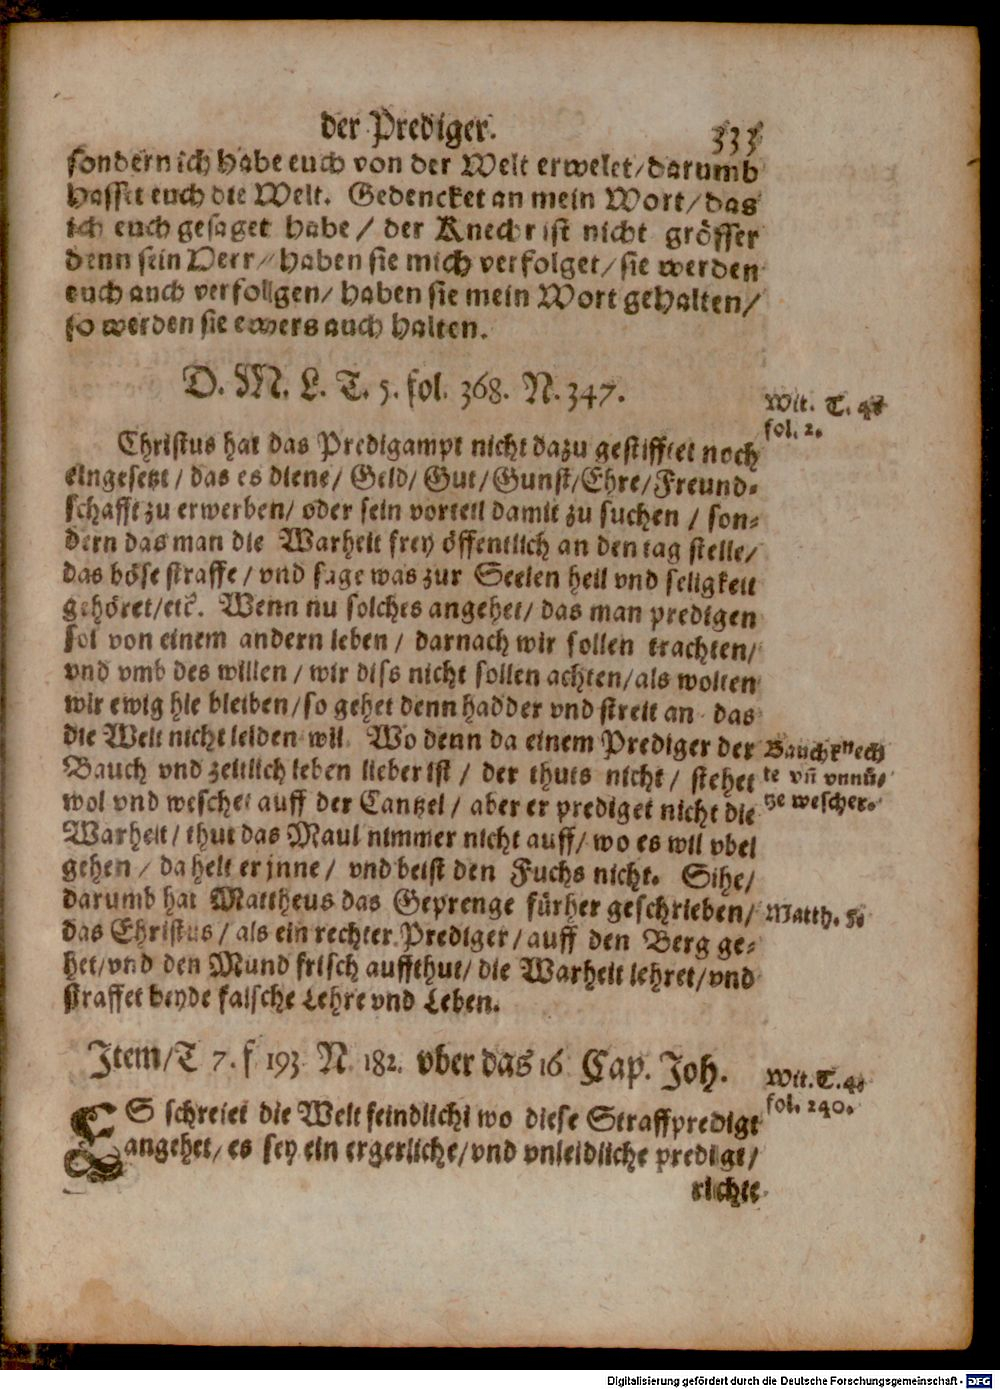 der Prediger. 333
sondern ich habe euch von der Welt erwelet/darumb
hasset euch die Welt. Gedencket an mein Wort/das
ich euch gesaget habe / der Knecht ist nicht grösser
denn sein Herr/ haben sie mich verfolget/ sie werden
euch auch verfollgen/ haben sie mein Wort gehalten/
so werden sie ewers auch halten.
D. M. L. T. 5. fol. 368. N. 347.
Wit. T. 4.
fol. 2.
Christus hat das Predigampt nicht dazu gestifftet noch
eingesetzt / das es diene/ Geld/ Gut/Gunst/Ehre/Freund-
schafft zu erwerben/ oder sein vorteil damit zu suchen / son-
dern das man die Warheit frey öffentlich an den tag stelle/
das böse straffe / vnd sage was zur Seelen heil vnd seligkeit
gehöret/etc. Wenn nu solches angehet/ das man predigen
sol von einem andern leben / darnach wir sollen trachten/
vnd vmb des willen / wir diss nicht sollen achten/als wolten
wir ewig hie bleiben/so gehet denn hadder vnd streit an das
die Welt nicht leiden wil. Wo denn da einem Prediger der
Bauch vnd zeitlich leben lieber ist / der thuts nicht / stehet
wol vnd weschet auff der Cantzel / aber er prediget nicht die
Bauchknech
te vñ vnnü-
tze wescher.
Warheit/ thut das Maul nimmer nicht auff/ wo es wil vbel
gehen / da helt er jnne / vnd beist den Fuchs nicht. Sihe/
darumb hat Mattheus das Geprenge fürher geschrieben/
Matth. 5.
das Christus / als ein rechter Prediger/ auff den Berg ge-
het/vnd den Mund frisch auffthut/ die Warheit lehret/vnd
straffet beyde falsche Lehre vnd Leben.
Item/T 7. f 193 N. 182. vber das 16 Cap. Joh.
Wit. T. 4.
fol. 240.
ES schreiet die Welt feindlich/ wo diese Straffpredigt
angehet/ es sey ein ergerliche/vnd vnleidliche predigt/
richte
Digitalisierung gefördert durch die Deutsche Forschungsgemeinschaft - DFG